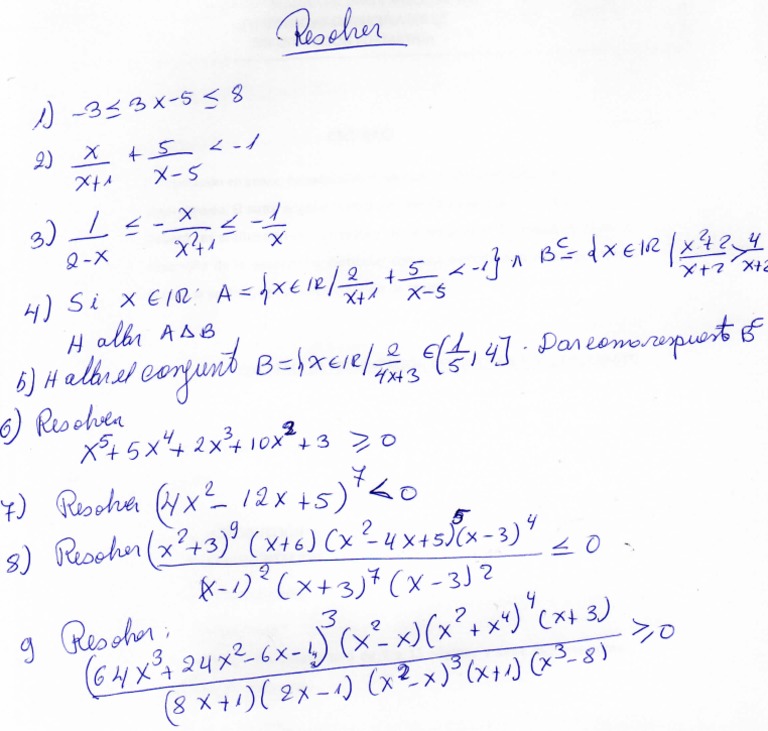 Resolver
1) -3 ≤ 3x-5 ≤ 8
2) x/(x+1) + 5/(x-5) < -1
3) 1/(2-x) ≤ -x/(x²+1) ≤ -1/x
4) Si x ∈ IR: A = {x ∈ IR / 2/(x+1) + 5/(x-5) < -1} ∧ Bᶜ = {x ∈ IR / (x²+2)/(x+2) > 4/(x+2
Hallar A Δ B
5) Hallar el conjunto B = {x ∈ IR / 2/(4x+3) ∈ (1/5, 4] . Dar como respuesta Bᶜ
6) Resolver
x⁵ + 5x⁴ + 2x³ + 10x² + 3 ≥ 0
7) Resolver (4x² - 12x + 5)⁷ < 0
8) Resolver (x²+3)⁹ (x+6) (x²-4x+5)⁵ (x-3)⁴ / x-1)² (x+3)⁷ (x-3)² ≤ 0
9 Resolver:
(64x³ + 24x² - 6x - 1)³ (x²-x) (x²+x⁴)⁴ (x+3) / (8x+1) (2x-1) (x²-x)³ (x+1) (x³-8) ≥ 0